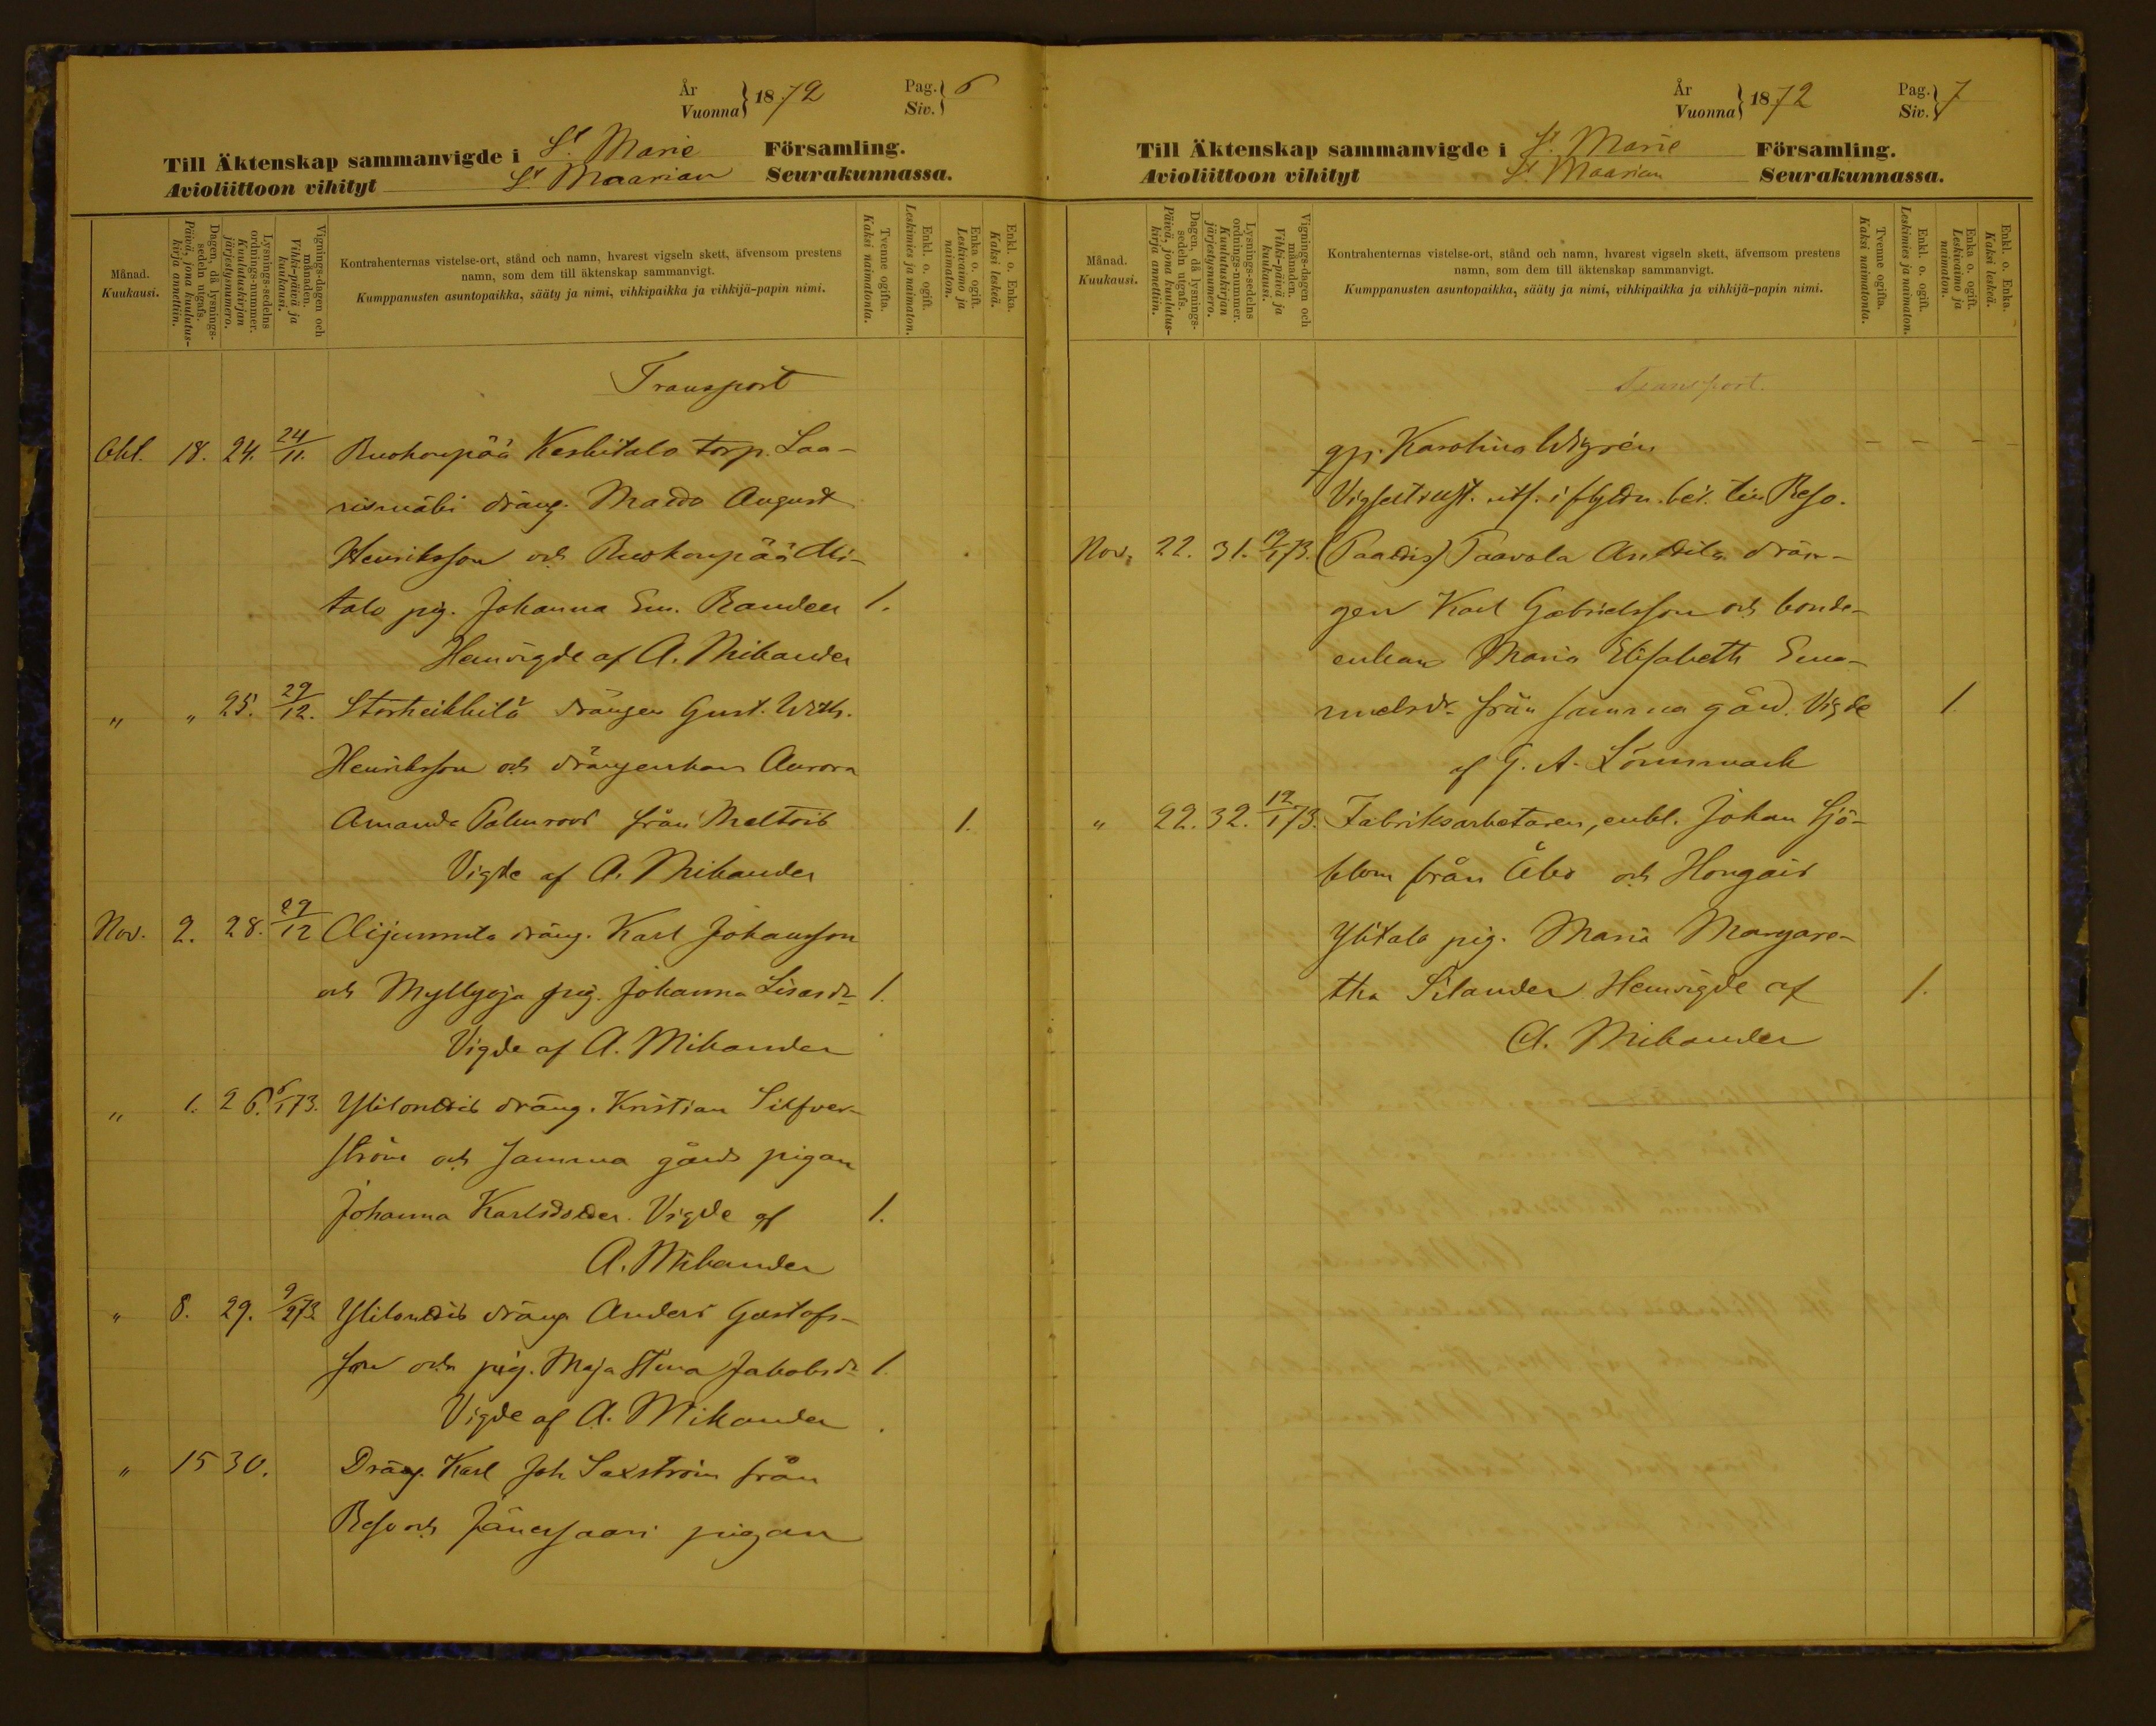 År
Vuonna } 1872
Pag.
Siv. } 6
Till Äktenskap sammanvigde i St Marie Församling.
Avioliittoon vihityt St Maarian Seurakunnassa.
Månad.
Kuukausi.
Dagen, då lysnings-
sedeln utgafs.
Päivä, jona kuulutus-
kirja annettiin.
Lysnings-sedelns
ordnings-nummer.
Kuulutuskirjan
järjestysnumero.
Vignings-dagen och
månaden.
Vihki-päivä ja
kuukausi.
Kontrahenternas vistelse-ort, stånd och namn, hvarest vigseln skett, äfvensom prestens
namn, som dem till äktenskap sammanvigt.
Kumppanusten asuntopaikka, sääty ja nimi, vihkipaikka ja vihkijä-papin nimi.
Tvenne ogifta.
Kaksi naimatonta.
Enkl. o. ogift.
Leskimies ja naimaton.
Enka o. ogift.
Leskivaimo ja
naimaton.
Enkl. o. Enka.
Kaksi leskeä.
Transport
Okt. 18. 24. 24/11. Ruohonpää Keskitalo torp. Laa-
rismäki dräng. August
Henriksson och Ruohonpää Ali-
talo pig. Johanna Em. Randen 1.
Hemvigde af A. Mikander
" " 25. 29/12. Storheikkilä drängen Gust. Wilh.
Henriksson och drängenkan Aurora
Amanda Palmroos från 1.
Vigde af A. Mikander
Nov. 2. 28. 29/12 Alijummita dräng. Karl Johansson
och Myllyoja pig. Johanna Lisasdr 1.
Vigde af A. Mikander
" 1. 26. 6/1 73. dräng. Kristian Silfver-
ström och samma gårds pigan
Johanna Karlsdotter. Vigde af 1.
A. Mikander
" 8. 29. 9/2 73 dräng Anders Gustafs-
son och pig. Maja Stina Jakobsdr 1.
Vigde af A. Mikander
" 15 30. Dräng. Karl Joh Saxström från
Reso och Jänessaari pigan
År
Vuonna } 1872
Pag.
Siv. } 7
Till Äktenskap sammanvigde i St. Marie Församling.
Avioliittoon vihityt St. Maarian Seurakunnassa.
Månad.
Kuukausi.
Dagen, då lysnings-
sedeln utgafs.
Päivä, jona kuulutus-
kirja annettiin.
Lysnings-sedelns
ordnings-nummer.
Kuulutuskirjan
järjestysnumero.
Vignings-dagen och
månaden.
Vihki-päivä ja
kuukausi.
Kontrahenternas vistelse-ort, stånd och namn, hvarest vigseln skett, äfvensom prestens
namn, som dem till äktenskap sammanvigt.
Kumppanusten asuntopaikka, sääty ja nimi, vihkipaikka ja vihkijä-papin nimi.
Tvenne ogifta.
Kaksi naimatonta.
Enkl. o. ogift.
Leskimies ja naimaton.
Enka o. ogift.
Leskivaimo ja
naimaton.
Enkl. o. Enka.
Kaksi leskeä.
Transport.
Karolina Wigrén - - - -
i till Reso.
Nov. 22. 31. 19/1 73. (Paattis) Paavola Anttila drän-
gen Karl Gabrielsson och bonde-
enkan Maria Elisabeth Ema-
nuelsdr från samma gård. Vigde 1.
af G. A. Lönnmark
" 22. 32. 12/1 73. Fabriksarbetaren, enkl. Johan Sjö-
blom från Åbo och
Ylitalo pig. Maria Margare-
tha Silander Hemvigde af 1.
A. Mikander